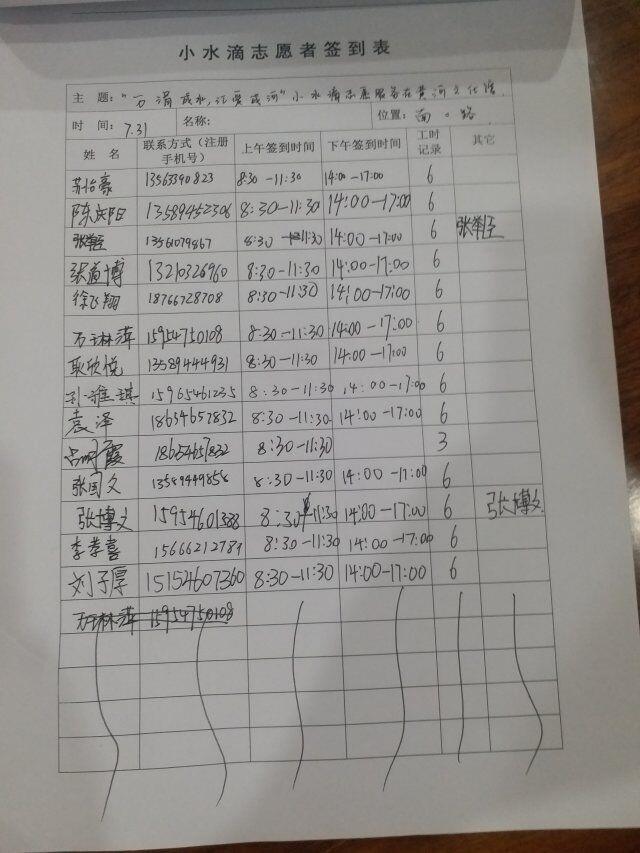 小水滴志愿者签到表
主 题：“万涓成水，汇爱成河”小水滴志愿服务在黄河文化馆
时 间：7.31 名称： 位置：南 路
姓 名 联系方式（注册手机号） 上午签到时间 下午签到时间 工时记录 其它
苏怡豪 13563390823 8:30-11:30 14:00-17:00 6
陈庆阳 13589452306 8:30-11:30 14:00-17:00 6
13561079867 8:30-11:30 14:00-17:00 6
张道博 13210326960 8:30-11:30 14:00-17:00 6
徐飞翔 18766728708 8:30-11:30 14:00-17:00 6
琳萍 15954750108 8:30-11:30 14:00-17:00 6
耿欣悦 13589444931 8:30-11:30 14:00-17:00 6
孙淮琪 15965461235 8:30-11:30 14:00-17:00 6
袁泽 18654657832 8:30-11:30 14:00-17:00 6
霞 18654657832 8:30-11:30 3
张国文 13589449858 8:30-11:30 14:00-17:00 6
张博文 15954601388 8:30-11:30 14:00-17:00 6 张博文
李孝喜 15666212789 8:30-11:30 14:00-17:00 6
刘子厚 15154607360 8:30-11:30 14:00-17:00 6
琳萍 15954750108